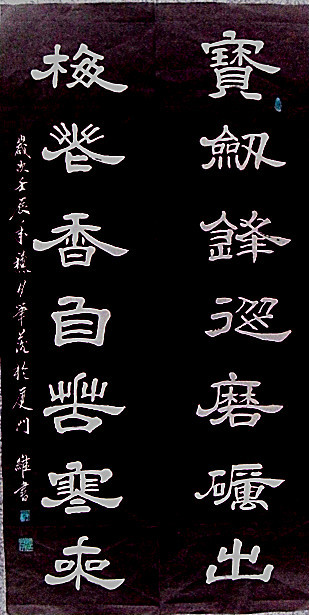 寶劔鋒從磨礪出
梅花香自苦寒來
歲次壬辰
於廈門 維書